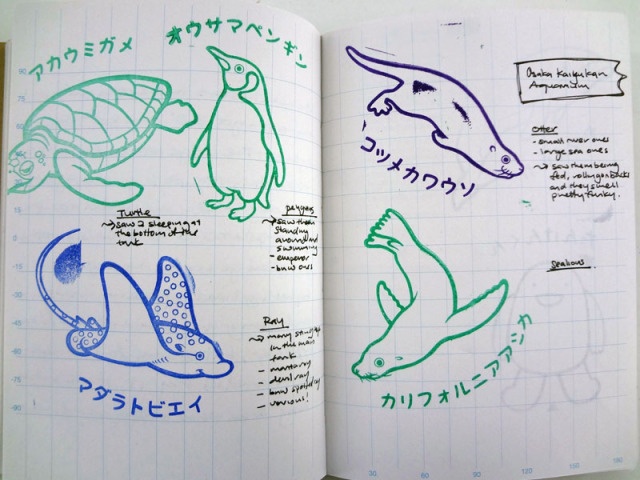 アカウミガメ
オウサマペンギン
Turtle
→ saw 2 sleeping at
the bottom of the
tank
penguins
→ saw them
standing
around and
swimming
- emperor
- bnw ones
マダラトビエイ
Ray
→ many stingrays
in the main
tank
- manta ray
- devil ray
- bnw spotted ray
- various!
コツメカワウソ
Osaka Kaiyukan
Aquarium
Otter
- small river ones
- large sea ones
→ saw them being
fed, rolling on backs
and they smell
pretty funky.
Sealions
カリフォルニアアシカ
90
75
60
45
30
15
0
-15
-30
-45
-60
-75
-90
30
60
90
120
150
180